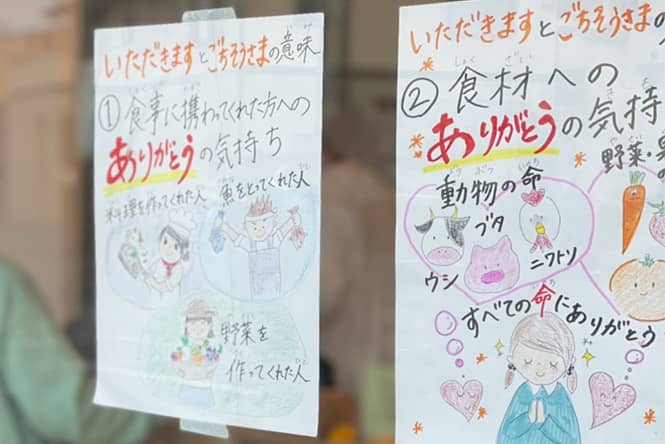 いただきますとごちそうさまの意味
①食事に携わってくれた方への
ありがとうの気持ち
料理を作ってくれた人
魚をとってくれた人
野菜を
作ってくれた人
いただきますとごちそうさまの
②食材への
ありがとうの気持
動物の命
ウシ
ブタ
ニワトリ
野菜・
すべての命にありがとう